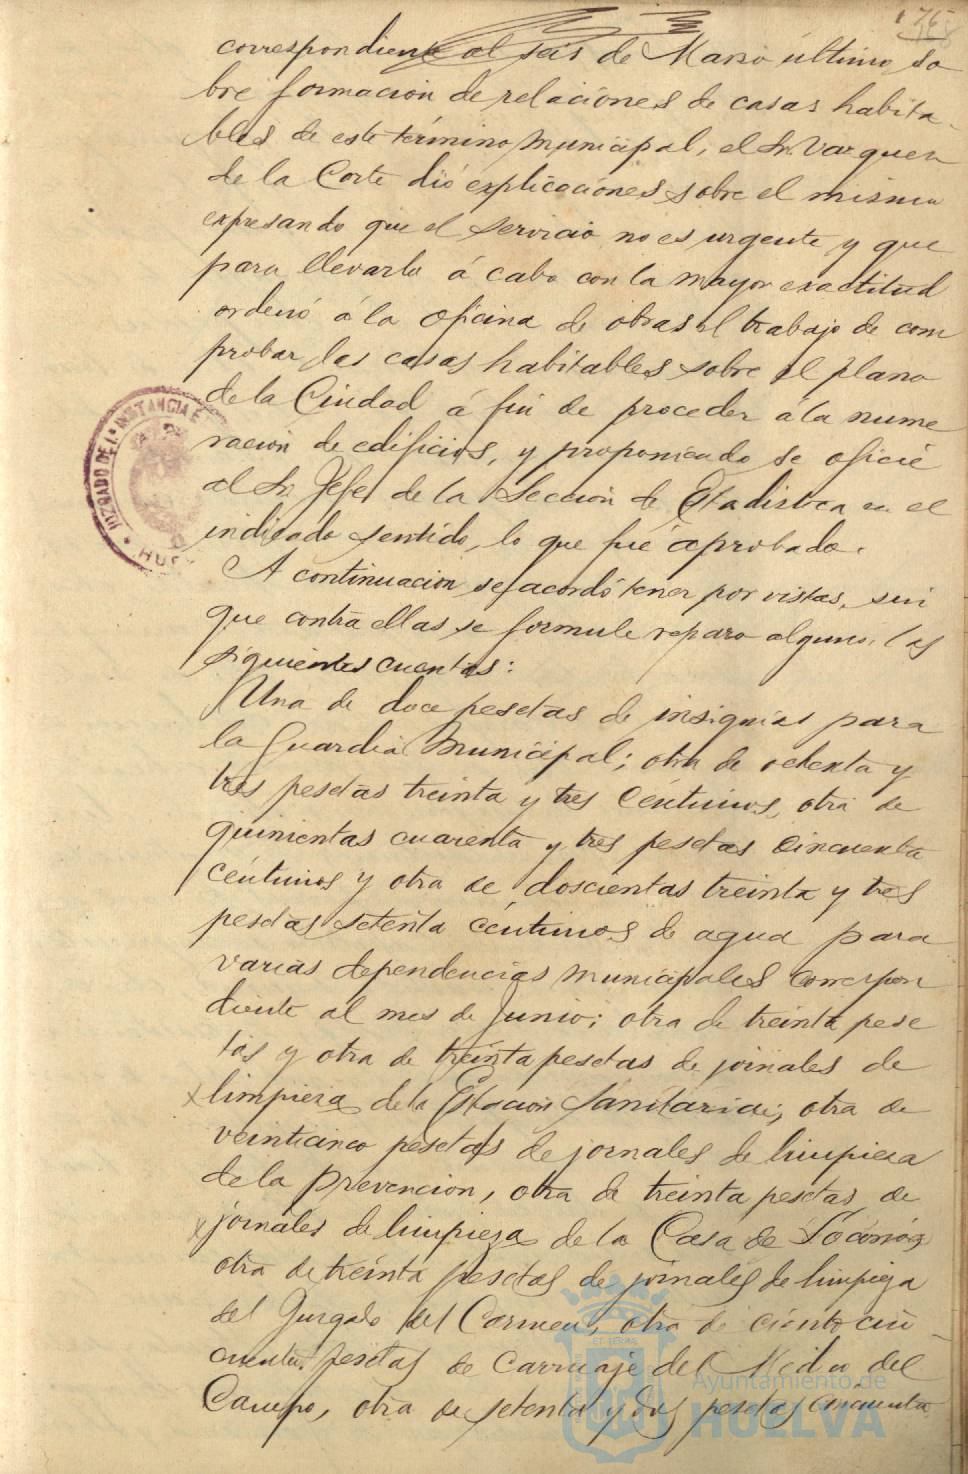 correspondiente al seis de Marzo último so
bre formacion de relaciones de casas habita-
bles de este término municipal, el Sr. Vazquez
de la Corte dió explicaciones sobre el mismo
expresando que el servicio no es urgente y que
para llevarlo á cabo con la mayor exactitud
ordenó á la oficina de obras el trabajo de com
probar las casas habitables sobre el plano
de la Ciudad á fin de proceder á la nume
racion de edificios, y proponiendo se oficie
al Sr. Jefe de la Seccion de Estadistica en el
indicado sentido, lo que fué aprobado.
A continuacion se acordó tener por vistas, sin
que contra ellas se formule reparo alguno, las
siguientes cuentas:
Una de doce pesetas de insignias para
la Guardia Municipal; otra de ochenta y
tres pesetas treinta y tres céntimos, otra de
quinientas cuarenta y tres pesetas cincuenta
céntimos y otra de doscientas treinta y tres
pesetas setenta céntimos de agua para
varias dependencias municipales correspon
diente al mes de Junio; otra de treinta pese
tas y otra de treinta pesetas de jornales de
limpieza de la Estacion Sanitaria; otra de
veinticinco pesetas de jornales de limpieza
de la Prevencion, otra de treinta pesetas de
jornales de limpieza de la Casa de Socorro,
otra de treinta pesetas de jornales de limpieza
del Juzgado del Carmen, otra de ciento cin-
cuenta pesetas de carruaje del Médico del
Campo, otra de setenta y dos pesetas cincuenta
JUZGADO DE 1ª INSTANCIA E
HU
Ayuntamiento de
HUELVA